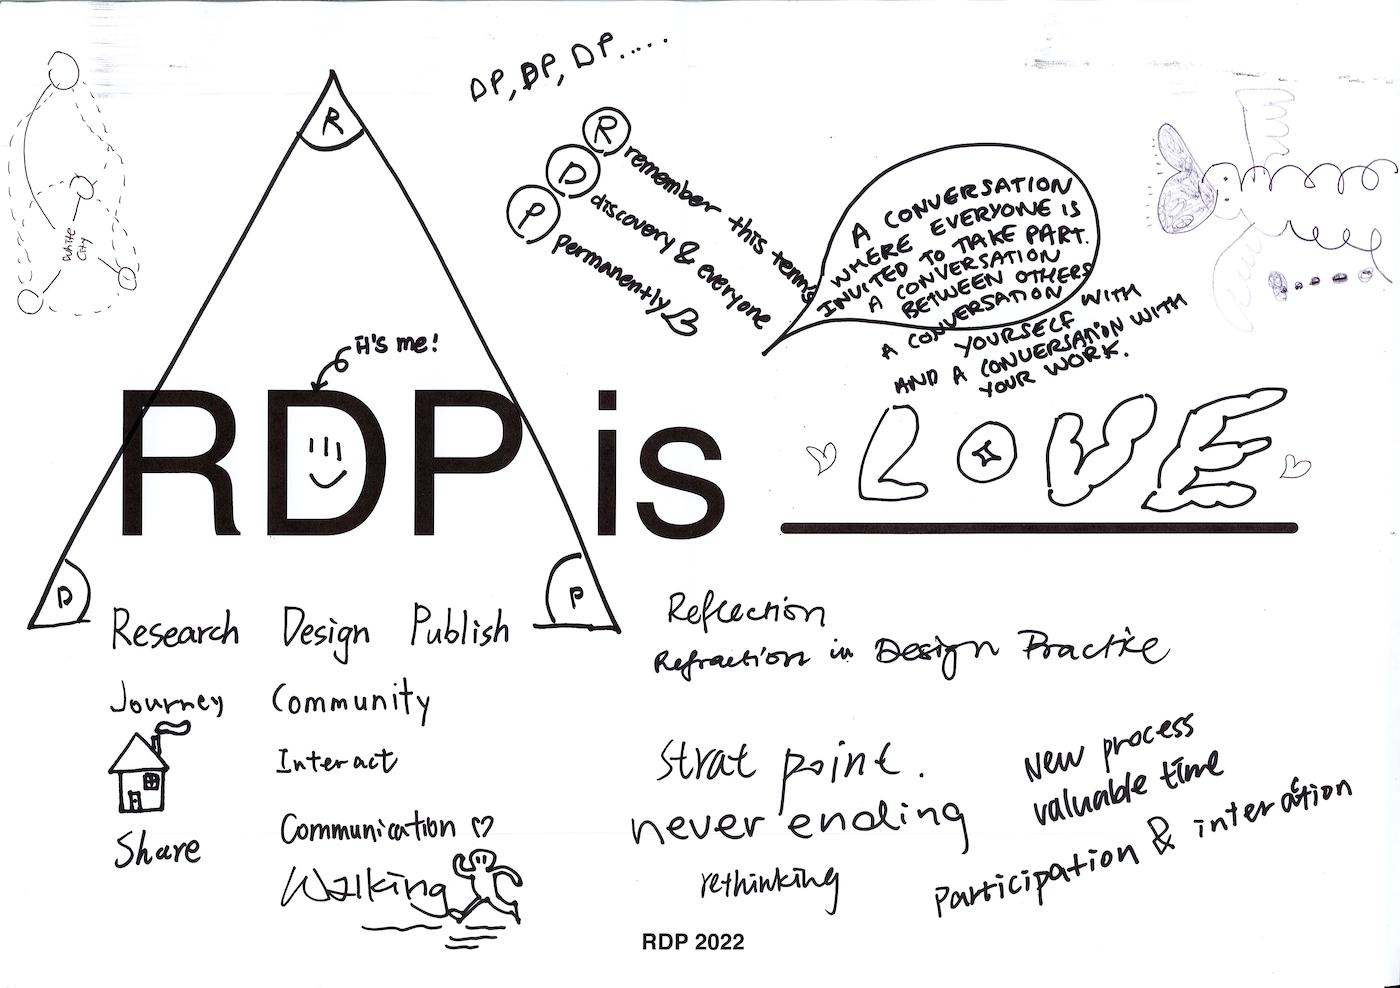 DP, DP, DP.....
R
R remember this terms
D discovery & everyone
P permanently
A CONVERSATION
WHERE EVERYONE IS
INVITED TO TAKE PART.
A CONVERSATION
BETWEEN OTHERS
A CONVERSATION WITH
YOURSELF
AND A CONVERSATION WITH
YOUR WORK.
White
City
it's me!
RDP is LOVE
D
P
Research Design Publish
Reflection
Refraction in Design Practice
Journey Community
Interact
Strat point.
New process
valuable time
Communication
never ending
Participation & interaction
Share
Walking
rethinking
RDP 2022